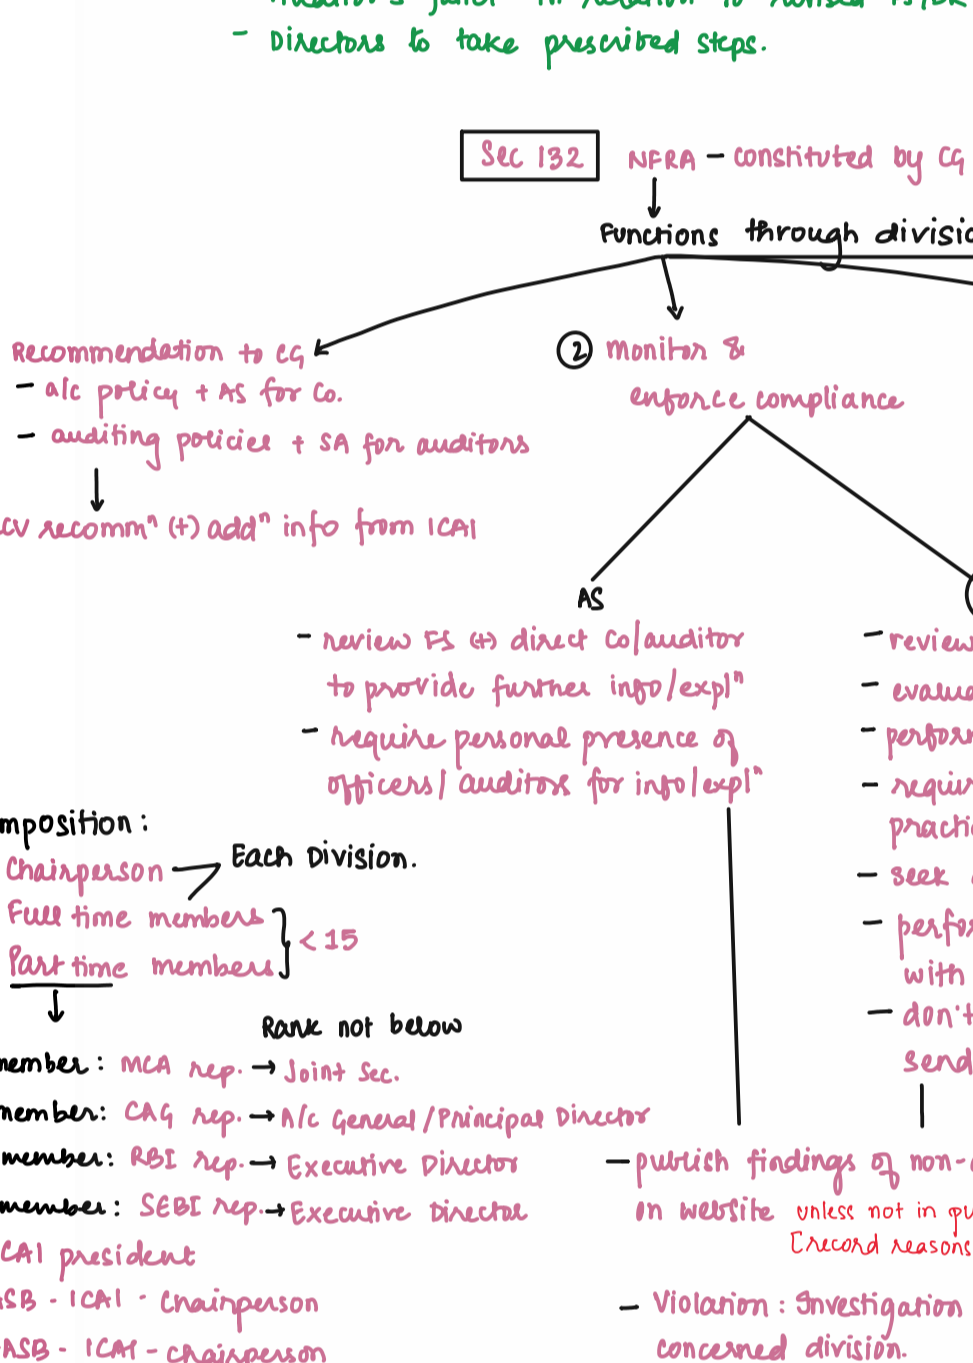 - Directors to take prescribed steps.
Sec 132 NFRA - constituted by CG
Functions through
Recommendation to CG
- a/c policy + AS for Co.
- auditing policies + SA for auditors
recommⁿ (+) addⁿ info from ICAI
② Monitor &
enforce compliance
AS
- review FS (+) direct Co/auditor
to provide further info/explⁿ
- require personal presence of
officers/ auditors for info/explⁿ
- review
-
-
-
- seek
-
with
- don't
send
Chairperson
Each Division.
Full time members
Part time members
< 15
Rank not below
member: MCA rep. → Joint Sec.
member: CAG rep. → A/c General/Principal Director
member: RBI rep. → Executive Director
member: SEBI rep. → Executive Director
president
- ICAI - Chairperson
- ICAI - chairperson
- publish findings of non-
on website unless not in
[record reasons
- Violation: Investigation
concerned division.